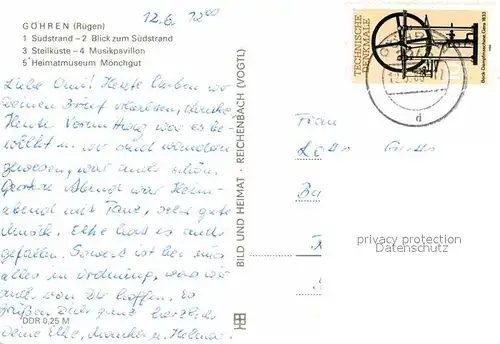 GÖHREN (Rügen)
1 Südstrand – 2 Blick zum Südstrand
3 Steilküste – 4 Musikpavillon
5 Heimatmuseum Mönchgut
12.6. 12⁰⁰
Liebe Omi! Heute haben wir
Deinen Brief erhalten, danke.
Heute Vormittag war es be-
wölkt u. wir sind wandern
gewesen, war auch schön.
Gestern Abend war Heim-
abend mit Tanz, sehr gute
Musik. Elke hat es auch
gefallen. Soweit ist bei uns
alles in Ordnung, was wir
auch von Dir hoffen. Es
grüßen Dich ganz herzlich
Deine Elke, u. Helmar.
DDR 0,25 M
BILD UND HEIMAT · REICHENBACH (VOGTL)
TECHNISCHE
DENKMALE
Bock-Dampfmaschine, Gera 1833
d
Frau
privacy protection
DARPM